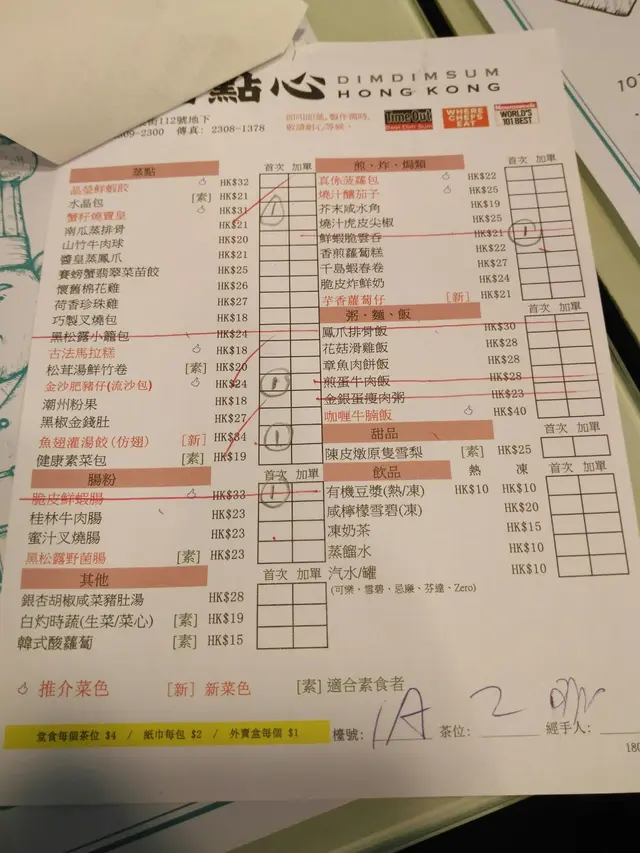 點心 DIMDIMSUM
HONG KONG
街112號地下
2309-2300 傳真: 2308-1378
即叫即蒸，製作需時，
敬請耐心等候。
TimeOut
WHERE CHEFS EAT
Newsweek
WORLD'S
101 BEST
蒸點 首次 加單
晶瑩鮮蝦餃 HK$32
水晶包 [素] HK$21
蟹籽燒賣皇 HK$31
南瓜蒸排骨 HK$21
山竹牛肉球 HK$20
醬皇蒸鳳爪 HK$21
賽螃蟹翡翠菜苗餃 HK$25
懷舊棉花雞 HK$26
荷香珍珠雞 HK$27
巧製叉燒包 HK$18
黑松露小籠包 HK$24
古法馬拉糕 HK$18
松茸湯鮮竹卷 [素] HK$20
金沙肥豬仔(流沙包) HK$24
潮州粉果 HK$18
黑椒金錢肚 HK$27
魚翅灌湯餃(仿翅) [新] HK$34
健康素菜包 [素] HK$19
腸粉 首次 加單
脆皮鮮蝦腸 HK$33
桂林牛肉腸 HK$23
蜜汁叉燒腸 HK$23
黑松露野菌腸 [素] HK$23
其他 首次 加單
銀杏胡椒咸菜豬肚湯 HK$28
白灼時蔬(生菜/菜心) [素] HK$19
韓式酸蘿蔔 [素] HK$15
煎·炸·焗類 首次 加單
真係菠蘿包 HK$22
燒汁釀茄子 HK$25
芥末咸水角 HK$19
燒汁虎皮尖椒 HK$25
鮮蝦脆雲吞 HK$21
香煎蘿蔔糕 HK$22
千島蝦春卷 HK$27
脆皮炸鮮奶 HK$24
芋香蘿蔔仔 [新] HK$21
粥·麵·飯 首次 加單
鳳爪排骨飯 HK$30
花菇滑雞飯 HK$28
章魚肉餅飯 HK$28
煎蛋牛肉飯 HK$28
金銀蛋瘦肉粥 HK$23
咖喱牛腩飯 HK$40
甜品 首次 加單
陳皮燉原隻雪梨 [素] HK$25
飲品 熱 凍 首次 加單
有機豆漿(熱/凍) HK$10 HK$10
咸檸檬雪碧(凍) HK$20
凍奶茶 HK$15
蒸餾水 HK$10
汽水/罐 HK$10
(可樂、雪碧、忌廉、芬達、Zero)
1
1
1
1
1
推介菜色 [新] 新菜色 [素] 適合素食者
堂食每個茶位 $4 / 紙巾每包 $2 / 外賣盒每個 $1
檯號: 1A 茶位: 2 經手人:
180
10